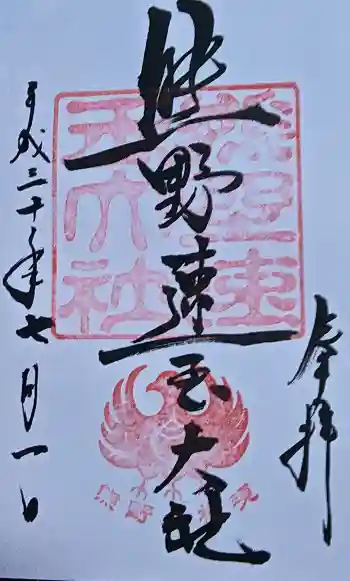 奉拝
熊野速玉大社
平成二十二年七月一日
熊野速玉大社
熊野権現